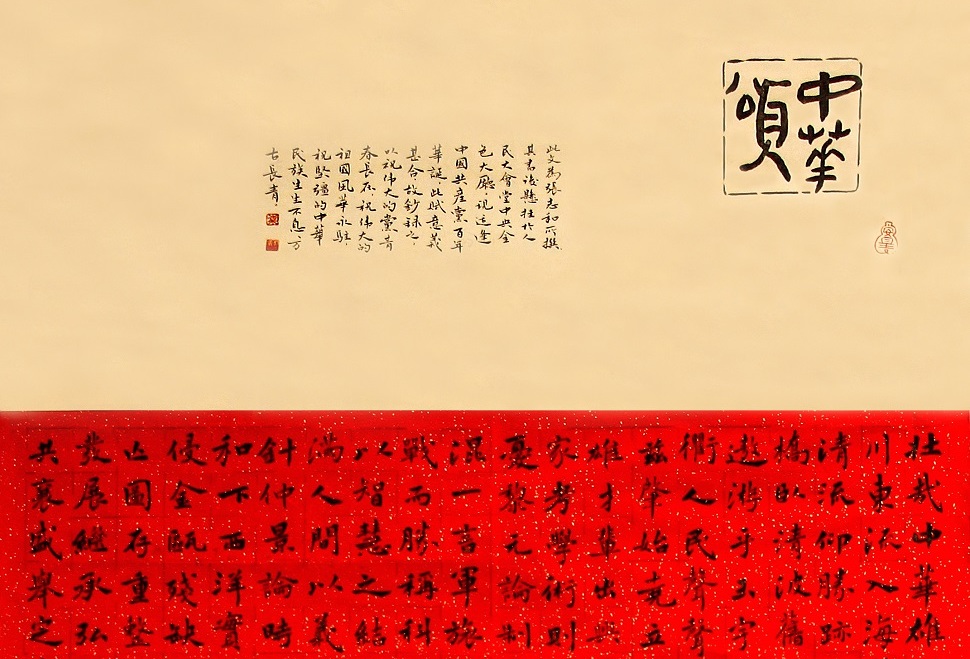 中華
頌
此文為張志和所撰
其書後懸挂於人
民大會堂中央金
色大廳現适逢
中國共産黨百年
華誕此賦意義
甚合故鈔録之
以祝偉大的黨青
春長在祝偉大的
祖國風華永駐
祝堅彊的中華
民族生生不息万
古長青
壯哉中華雄
川東流入海
清流仰勝跡
橋臥清波舊
遨游乎玉宇
衢人民聲聲
茲肇始堯立
雄才輩出典
家考學術則
憂黎元論制
混一言軍旅
戰而勝稱科
以智慧之結
滿人間以義
針仲景論時
和下西洋實
侵金甌殘缺
亡圖存重整
發展繼承弘
共襄盛舉定